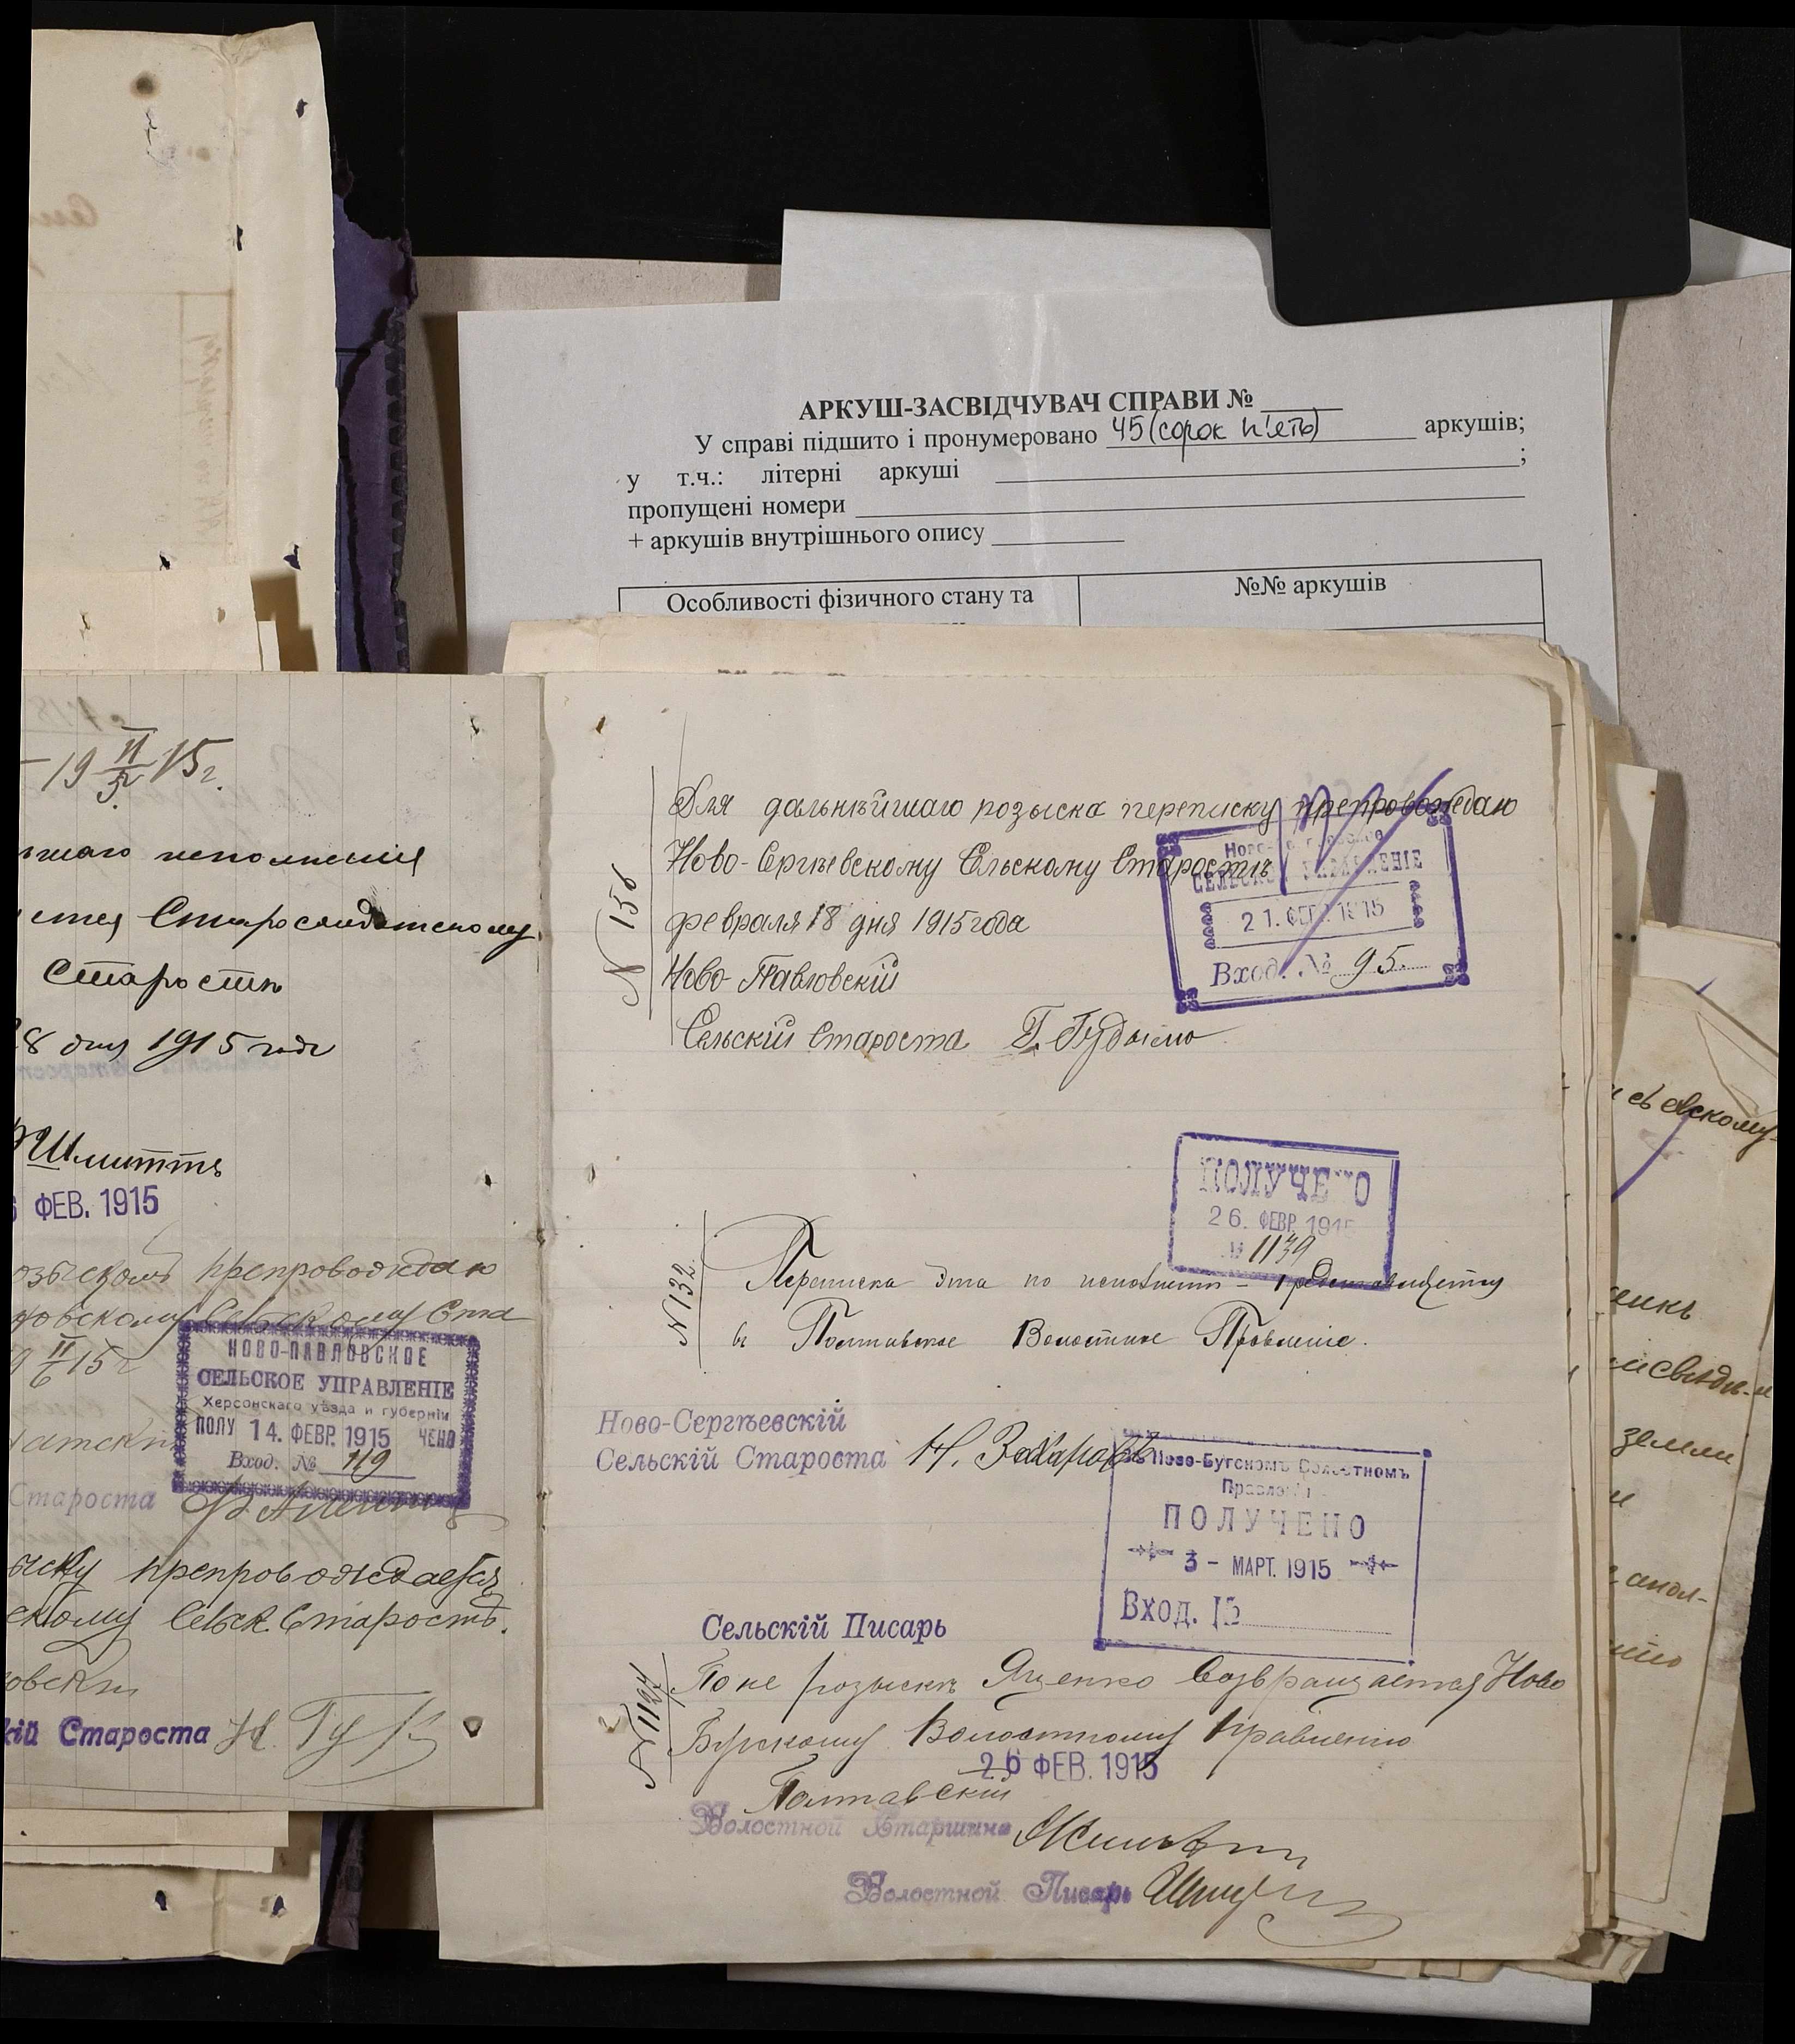 АРКУШ-ЗАСВІДЧУВАЧ СПРАВИ №
У справі підшито і пронумеровано 45 (сорок п'ять) аркушів;
у т.ч.: літерні аркуші ;
пропущені номери
+ аркушів внутрішнього опису
Особливості фізичного стану та
№№ аркушів
19 II/5 15 г.
исполнения
Старосолдатскому
Старостѣ
8 дня 1915 года
Шмиттъ
ФЕВ. 1915
препровождаю
Сельскому Ста
II/6 15 г
НОВО-ПАВЛОВСКОЕ
СЕЛЬСКОЕ УПРАВЛЕНІЕ
Херсонскаго уѣзда и губерніи
ПОЛУ 14. ФЕВР. 1915 ЧЕНО
Вход. № 119
Староста
препровождается
скому Сельск. Старостѣ.
кій Староста
№ 156
Для дальнѣйшаго розыска переписку препровождаю
Ново-Сергѣевскому Сельскому Старостѣ
февраля 18 дня 1915 года
Ново-Павловскій
Сельскій Староста Г. Гудыемо
СЕЛЬСКОЕ УПРАВЛЕНІЕ
21. ФЕВР. 1915
Вход. № 95.
ПОЛУЧЕНО
26. ФЕВР. 1915
№ 1139
№ 132
Переписка эта по исполнении представляется
въ Полтавское Волостное Правленіе.
Ново-Сергѣевскій
Сельскій Староста Н. Захаровъ
Въ Ново-Бугскомъ Волостномъ
Правленіи
ПОЛУЧЕНО
3 - МАРТ. 1915
Вход. №
Сельскій Писарь
№ 1127
По не розыскѣ Яценко возвращается Ново
Бугскому Волостному Правленію
26 ФЕВ. 1915
Полтавскій
Волостной Старшина
Волостной Писарь
съевскому
енкъ
земли